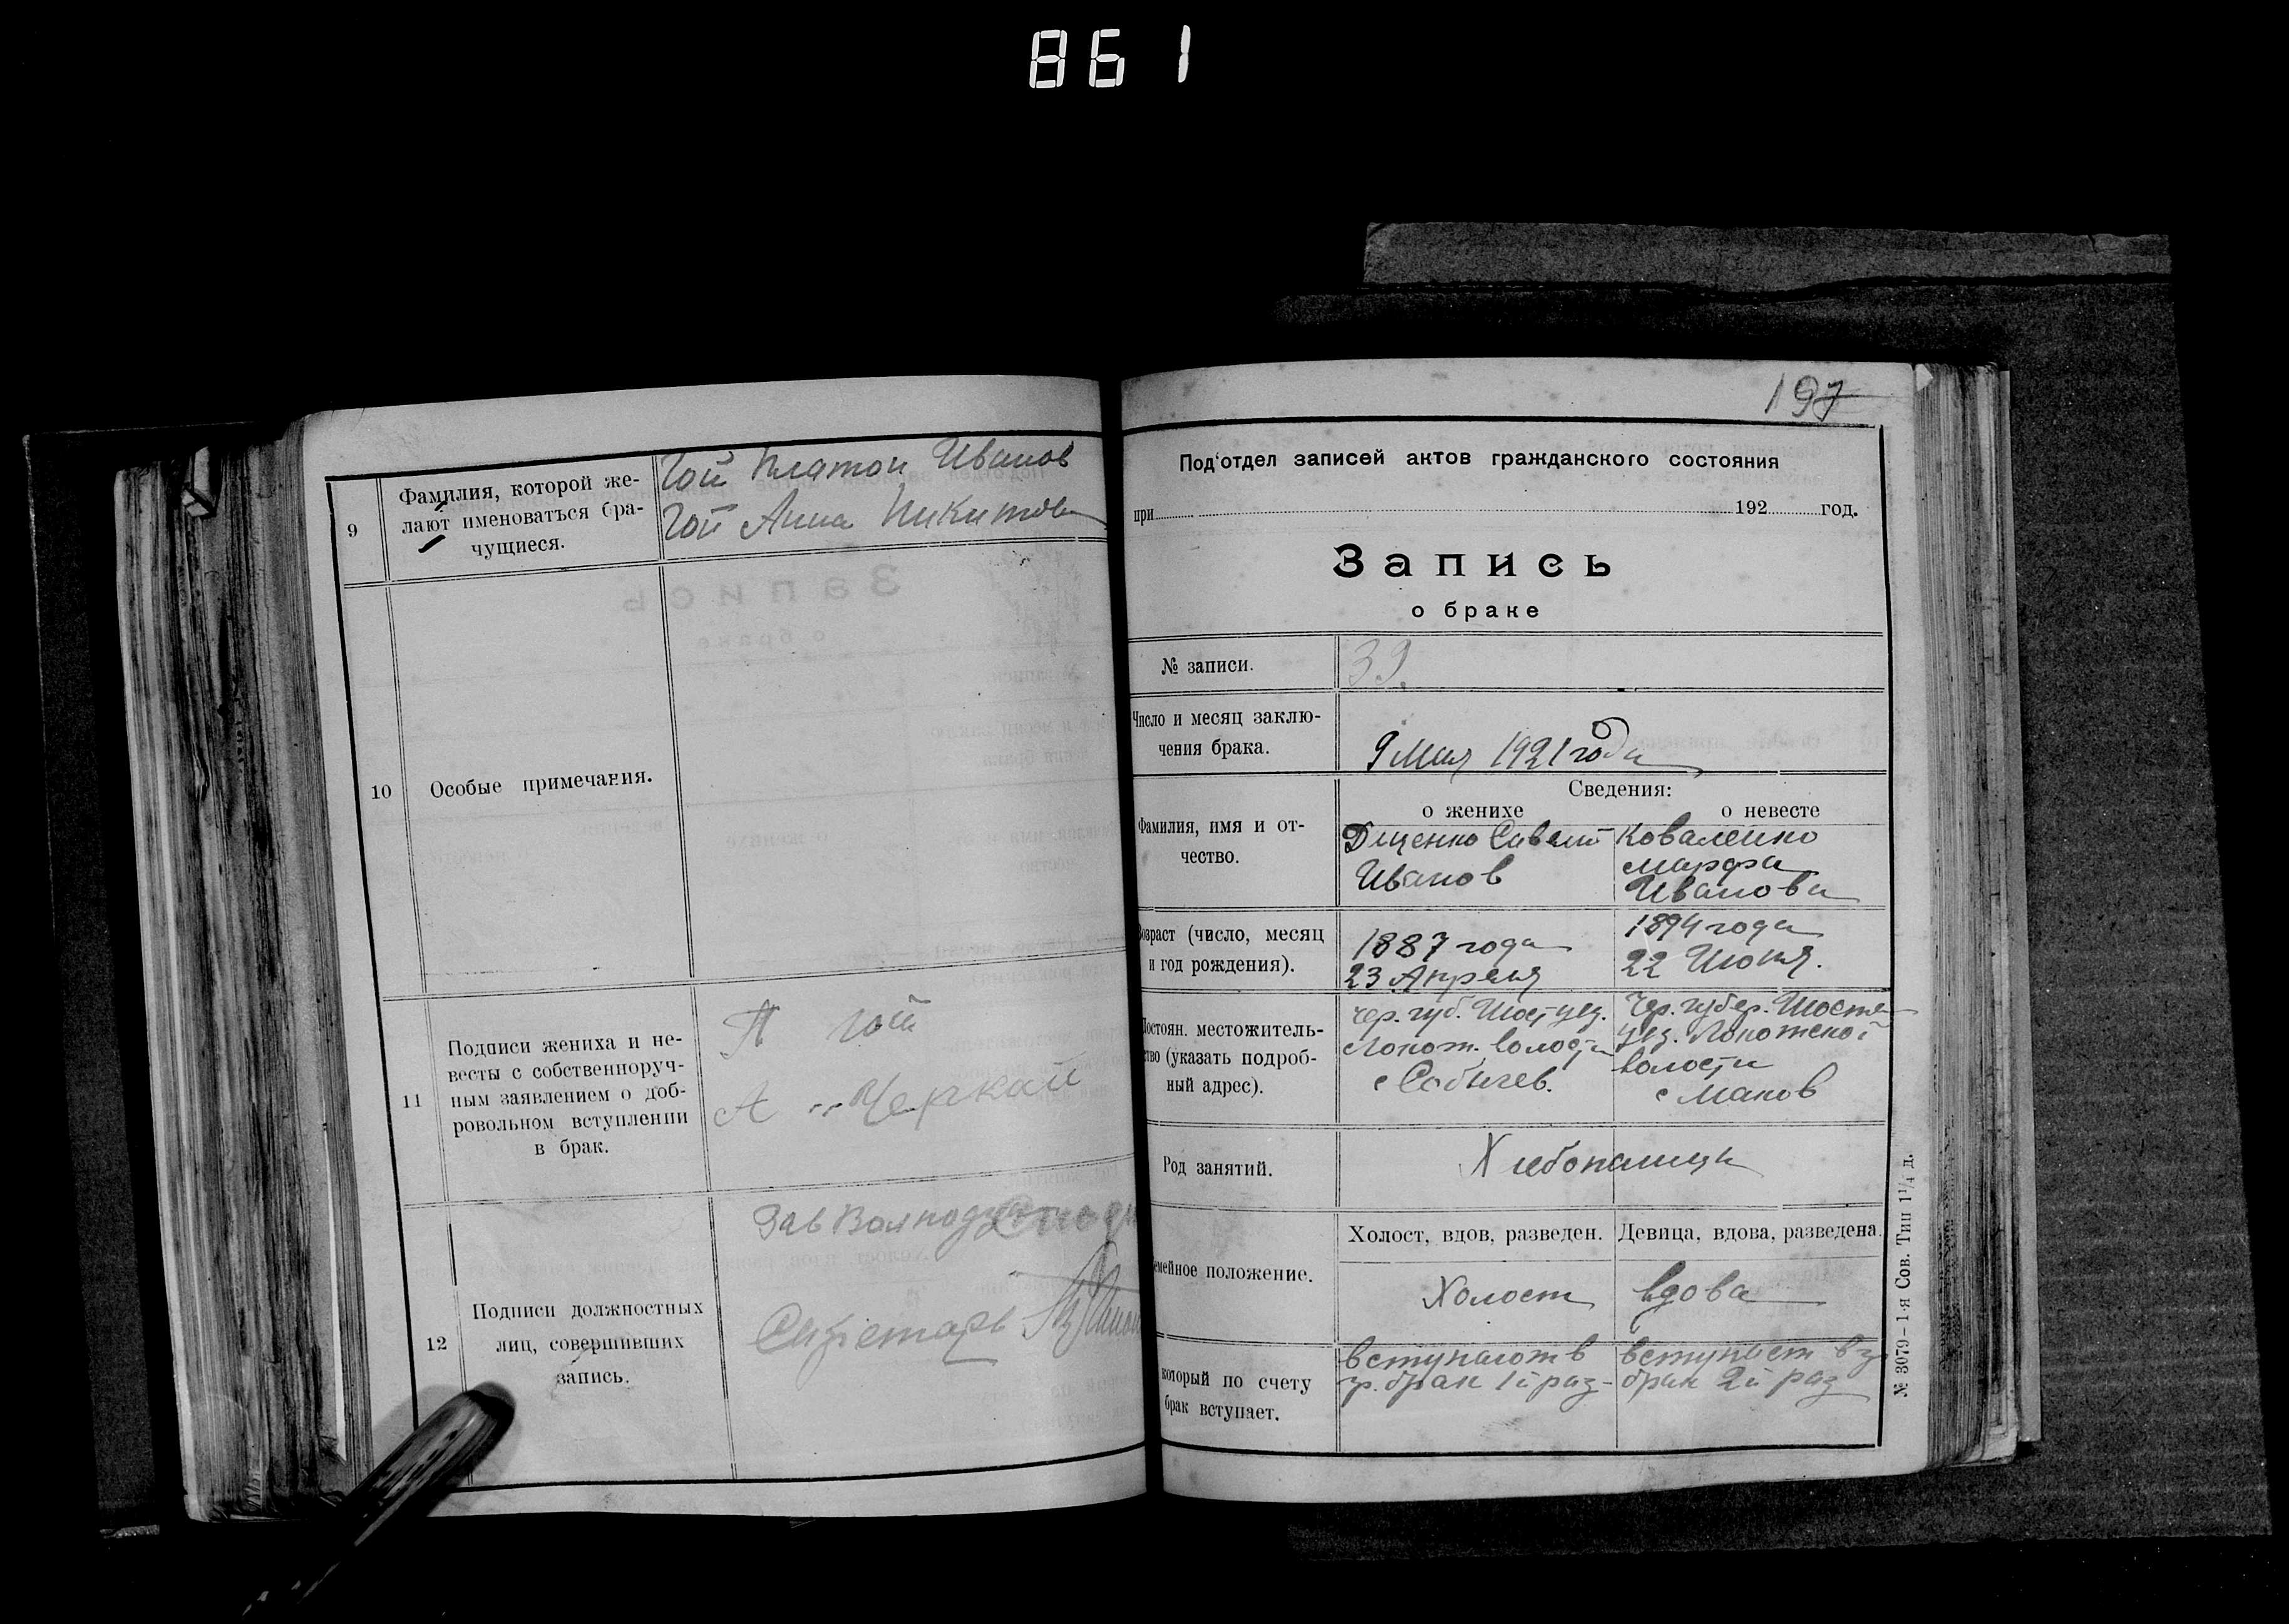 861
9
Фамилия, которой же-
лают именоваться бра-
чущиеся.
Гой Платон Иванов
Гой Анна Никитов
10
Особые примечания.
11
Подписи жениха и не-
весты с собственноруч-
ным заявлением о доб-
ровольном вступлении
в брак.
П Гой
А Черкай
12
Подписи должностных
лиц, совершивших
запись.
Зав
Секретарь
197
Под'отдел записей актов гражданского состояния
при 192 год.
Запись
о браке
№ записи.
39.
Число и месяц заклю-
чения брака.
9 Мая 1921 года
Сведения:
о женихе
о невесте
Фамилия, имя и от-
чество.
Диценко Савелий
Иванов
Коваленко
Марфа
Иванова
Возраст (число, месяц
и год рождения).
1887 года
23 Апреля
1894 года
22 Июня.
Постоян. местожитель-
ство (указать подроб-
ный адрес).
Чер. губ. Шост уез.
Локот. волости
с Собичев.
Чер. губер. Шостен
уез. Локотской
волости
с Маков
Род занятий.
Хлебопашцы
Семейное положение.
Холост, вдов, разведен.
Девица, вдова, разведена.
Холост
Вдова
который по счету
брак вступает.
вступают в
гр. брак 1й раз
вступает в гр
брак 2й раз
№ 3079–1-я Сов. Тип 1¼ д.